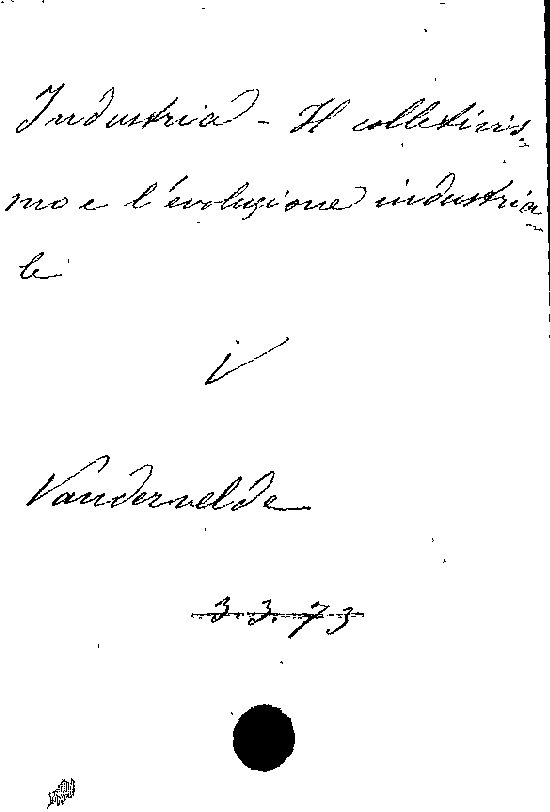 Industria - Il colletivis-
mo e l'evoluzione industria-
le
V
Vandervelde
3.3.73